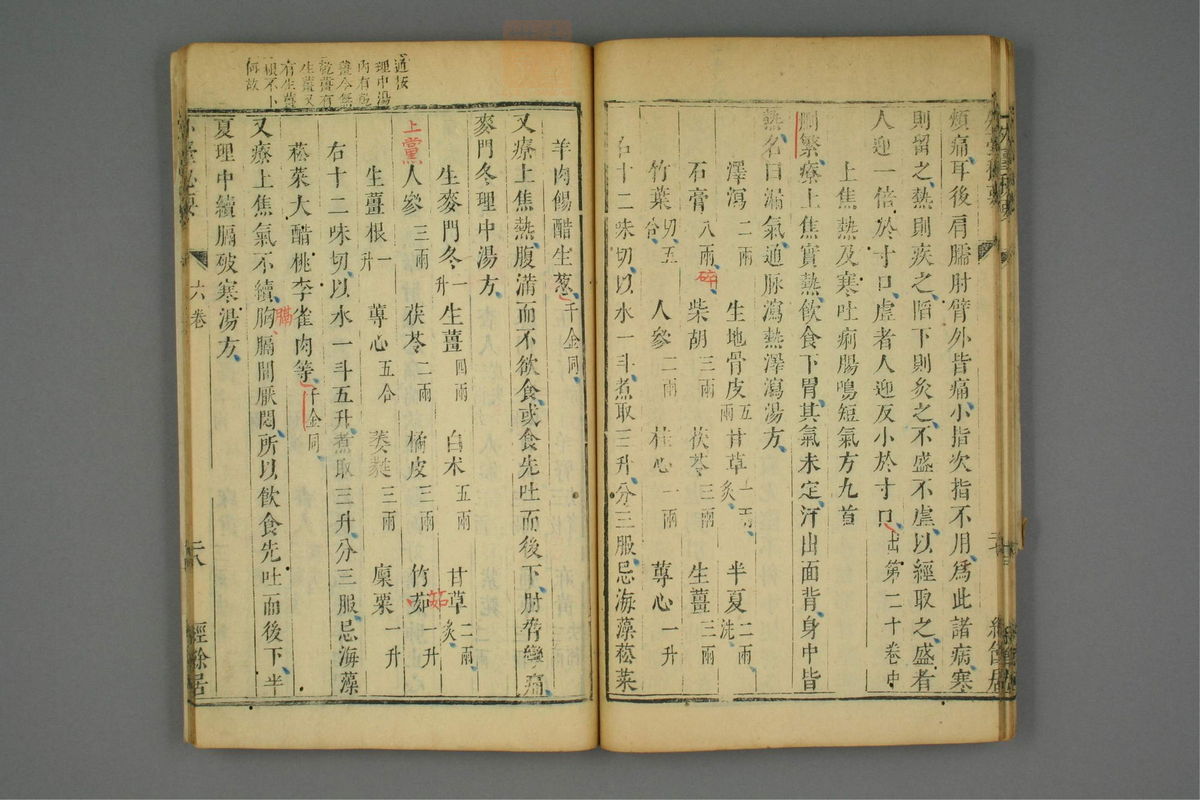 頰痛耳後肩臑肘臂外皆痛小指次指不用爲此諸病寒
則留之熱則疾之陷下則灸之不盛不虛以經取之盛者
人迎一倍於寸口虛者人迎反小於寸口出第二十卷中
上焦熱及寒吐痢腸鳴短氣方九首
刪繁療上焦實熱飲食下胃其氣未定汗出面背身中皆
熱名曰漏氣通脉瀉熱澤瀉湯方
澤瀉二兩 生地骨皮五兩 甘草一兩炙 半夏二兩洗
石膏八兩碎 柴胡三兩 茯苓三兩 生薑三兩
竹葉切五合 人參二兩 桂心一兩 蓴心一升
右十二味切以水一斗煮取三升分三服忌海藻菘菜
羊肉餳醋生葱千金同
又療上焦熱腹滿而不欲食或食先吐而後下肘臂攣痛
麥門冬理中湯方
生麥門冬一升 生薑四兩 白朮五兩 甘草炙二兩
上黨人參三兩 茯苓二兩 橘皮三兩 竹茹一升 茹
生薑根一升 蓴心五合 萎蕤三兩 廩粟一升
右十二味切以水一斗五升煮取三升分三服忌海藻
菘菜大醋桃李雀肉等千金同
又療上焦氣不續胸膈間厭悶所以飲食先吐而後下半 膈
夏理中續膈破寒湯方
六卷
經餘居
道按
理中湯
內有乾
薑今無
乾薑有
生薑又
有生薑
根不卜
何故